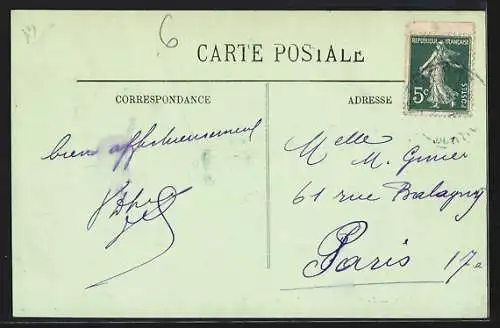 6
CARTE POSTALE
REPUBLIQUE FRANÇAISE
5c
POSTES
CORRESPONDANCE
ADRESSE
bien affectueusement
Melle
M.
61 rue Balagny
Paris 17e